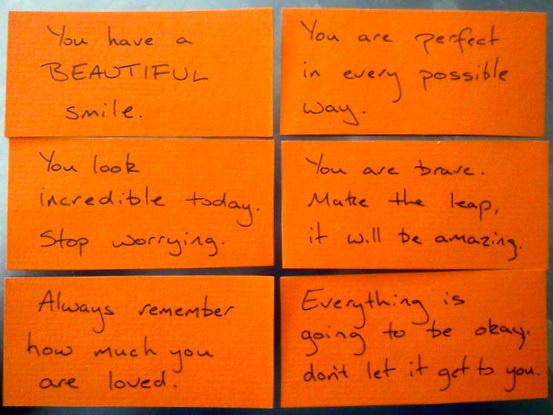 You have a
BEAUTIFUL
smile.
You are perfect
in every possible
way.
You look
incredible today.
Stop worrying.
You are brave.
Make the leap,
it will be amazing.
Always remember
how much you
are loved.
Everything is
going to be okay.
don't let it get to you.